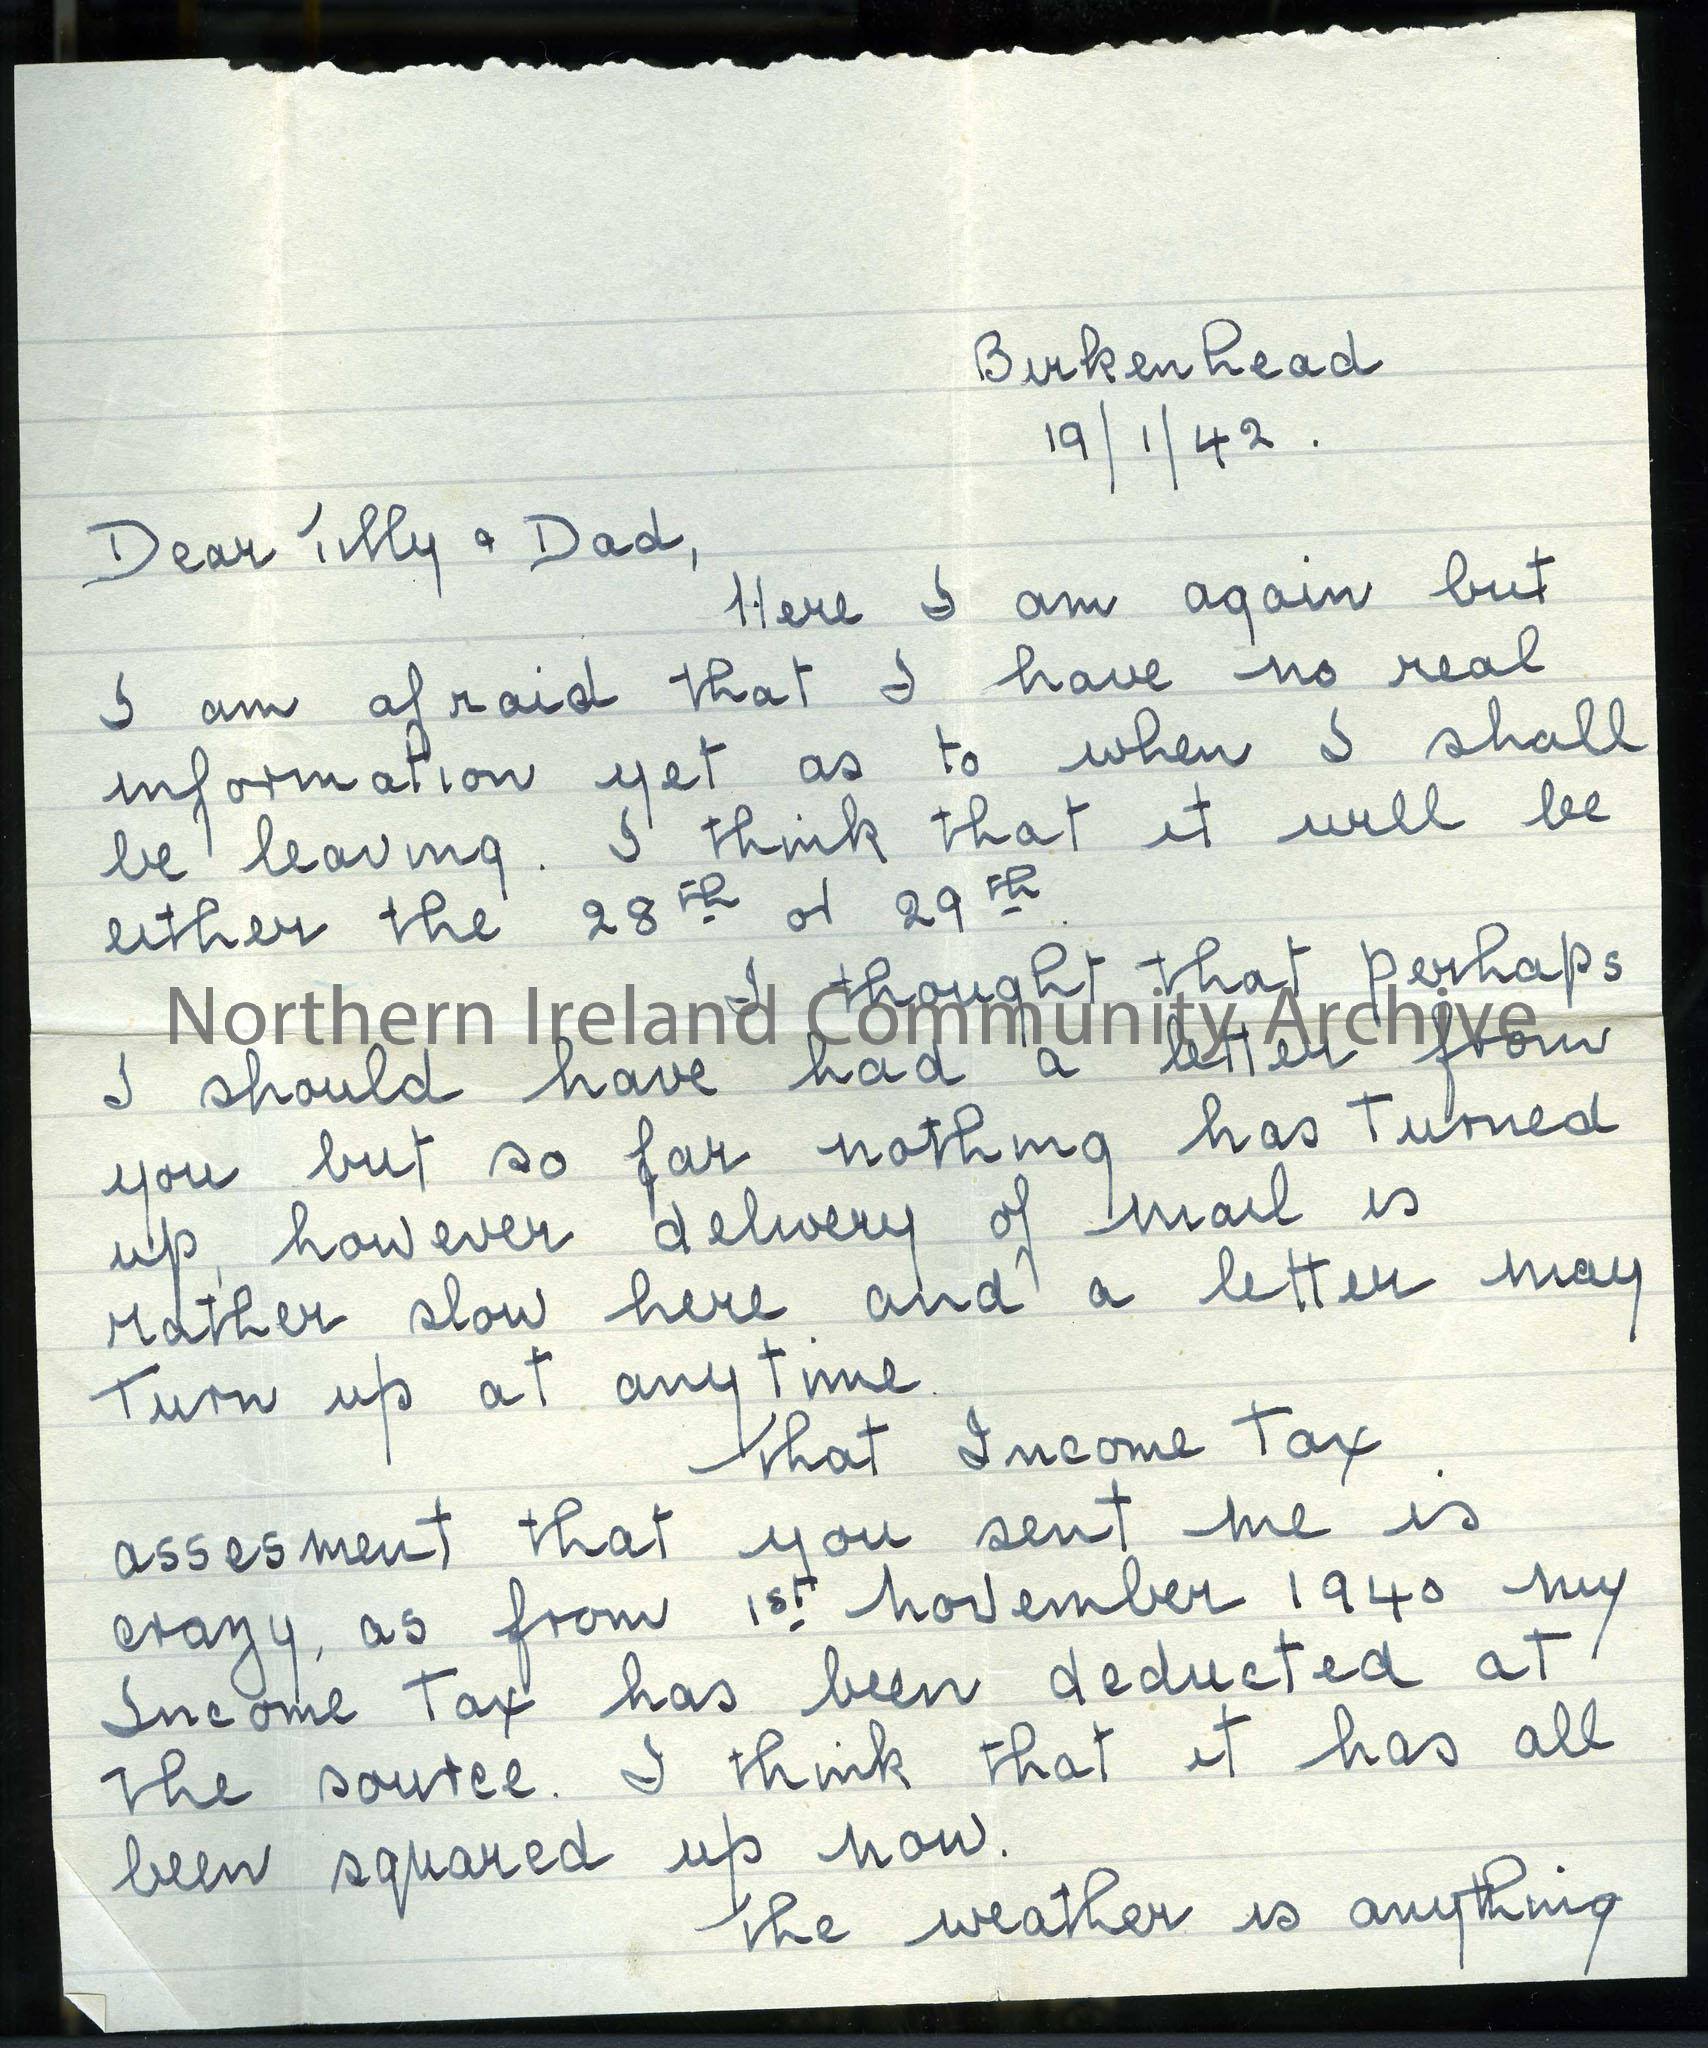 Birkenhead
19/1/42.
Dear Tilly & Dad,
Here I am again but
I am afraid that I have no real
information yet as to when I shall
be leaving. I think that it will be
either the 28th or 29th.
I thought that perhaps
Northern Ireland Community Archive
I should have had a letter from
you but so far nothing has turned
up, however delivery of mail is
rather slow here and a letter may
turn up at anytime.
That Income Tax
assesment that you sent me is
crazy, as from 1st November 1940 my
Income Tax has been deducted at
the source. I think that it has all
been squared up now.
The weather is anything